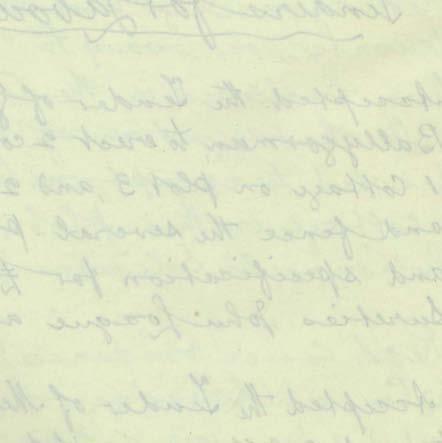 Tenders for
Accepted the Tender of
Ballygorman to erect 2 co
1 Cottage on plot 3 and 2
and fence the several p
and specification for £
Sureties John Logue a
Accepted the Tender of